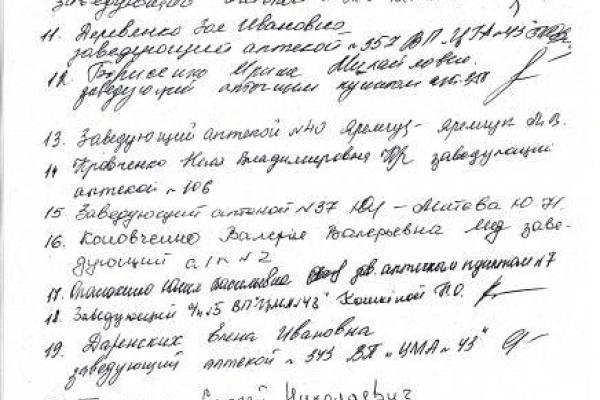 заведующий аптекой
11. Деревенко Зоя Ивановна
заведующий аптекой №357 ВП "ЦМА №43"
12. Борисенко Ирина Михайловна
заведующий аптечным пунктом
13. Заведующий аптекой №40 Яремчук - Яремчук М.В.
14 Кравченко Нелля Владимировна заведующий
аптекой №106
15. Заведующий аптекой №37 - Митова Ю.Н.
16. Коловченко Валерия Валерьевна заве-
дующий а/п №2
17. Васильевна зав. аптечным пунктом №7
18. Заведующий №5 ВП"ЦМА №43" Кошкиной Л.О.
19. Даренских Елена Ивановна
заведующий аптекой №343 ВП "ЦМА №43"
Сергей Николаевич